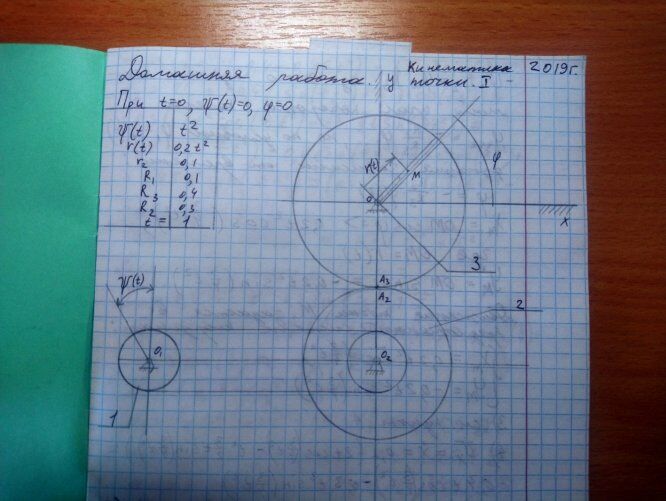 Домашняя работа.
Кинематика
точки. I
2019г.
При t=0, ψ(t)=0, φ=0
ψ(t) t²
r(t) 0,2t²
r₂ 0,1
R₁ 0,1
R₃ 0,4
R₂ 0,3
t= 1
r(t)
M
φ
O
x
3
A₃
A₂
2
ψ(t)
O₁
O₂
1